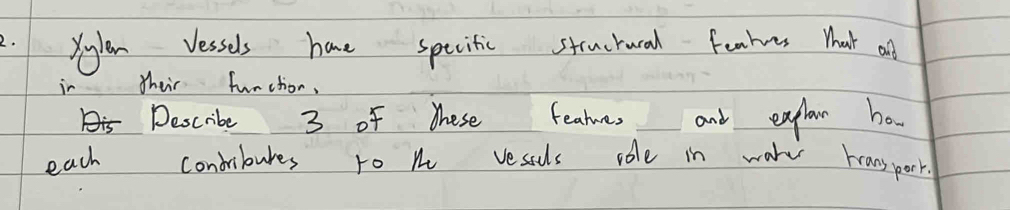 2. Xylem Vessels have specific structural features that aid
in their function.
Describe 3 of these features and explain how
each contributes to the vessels role in water transport.